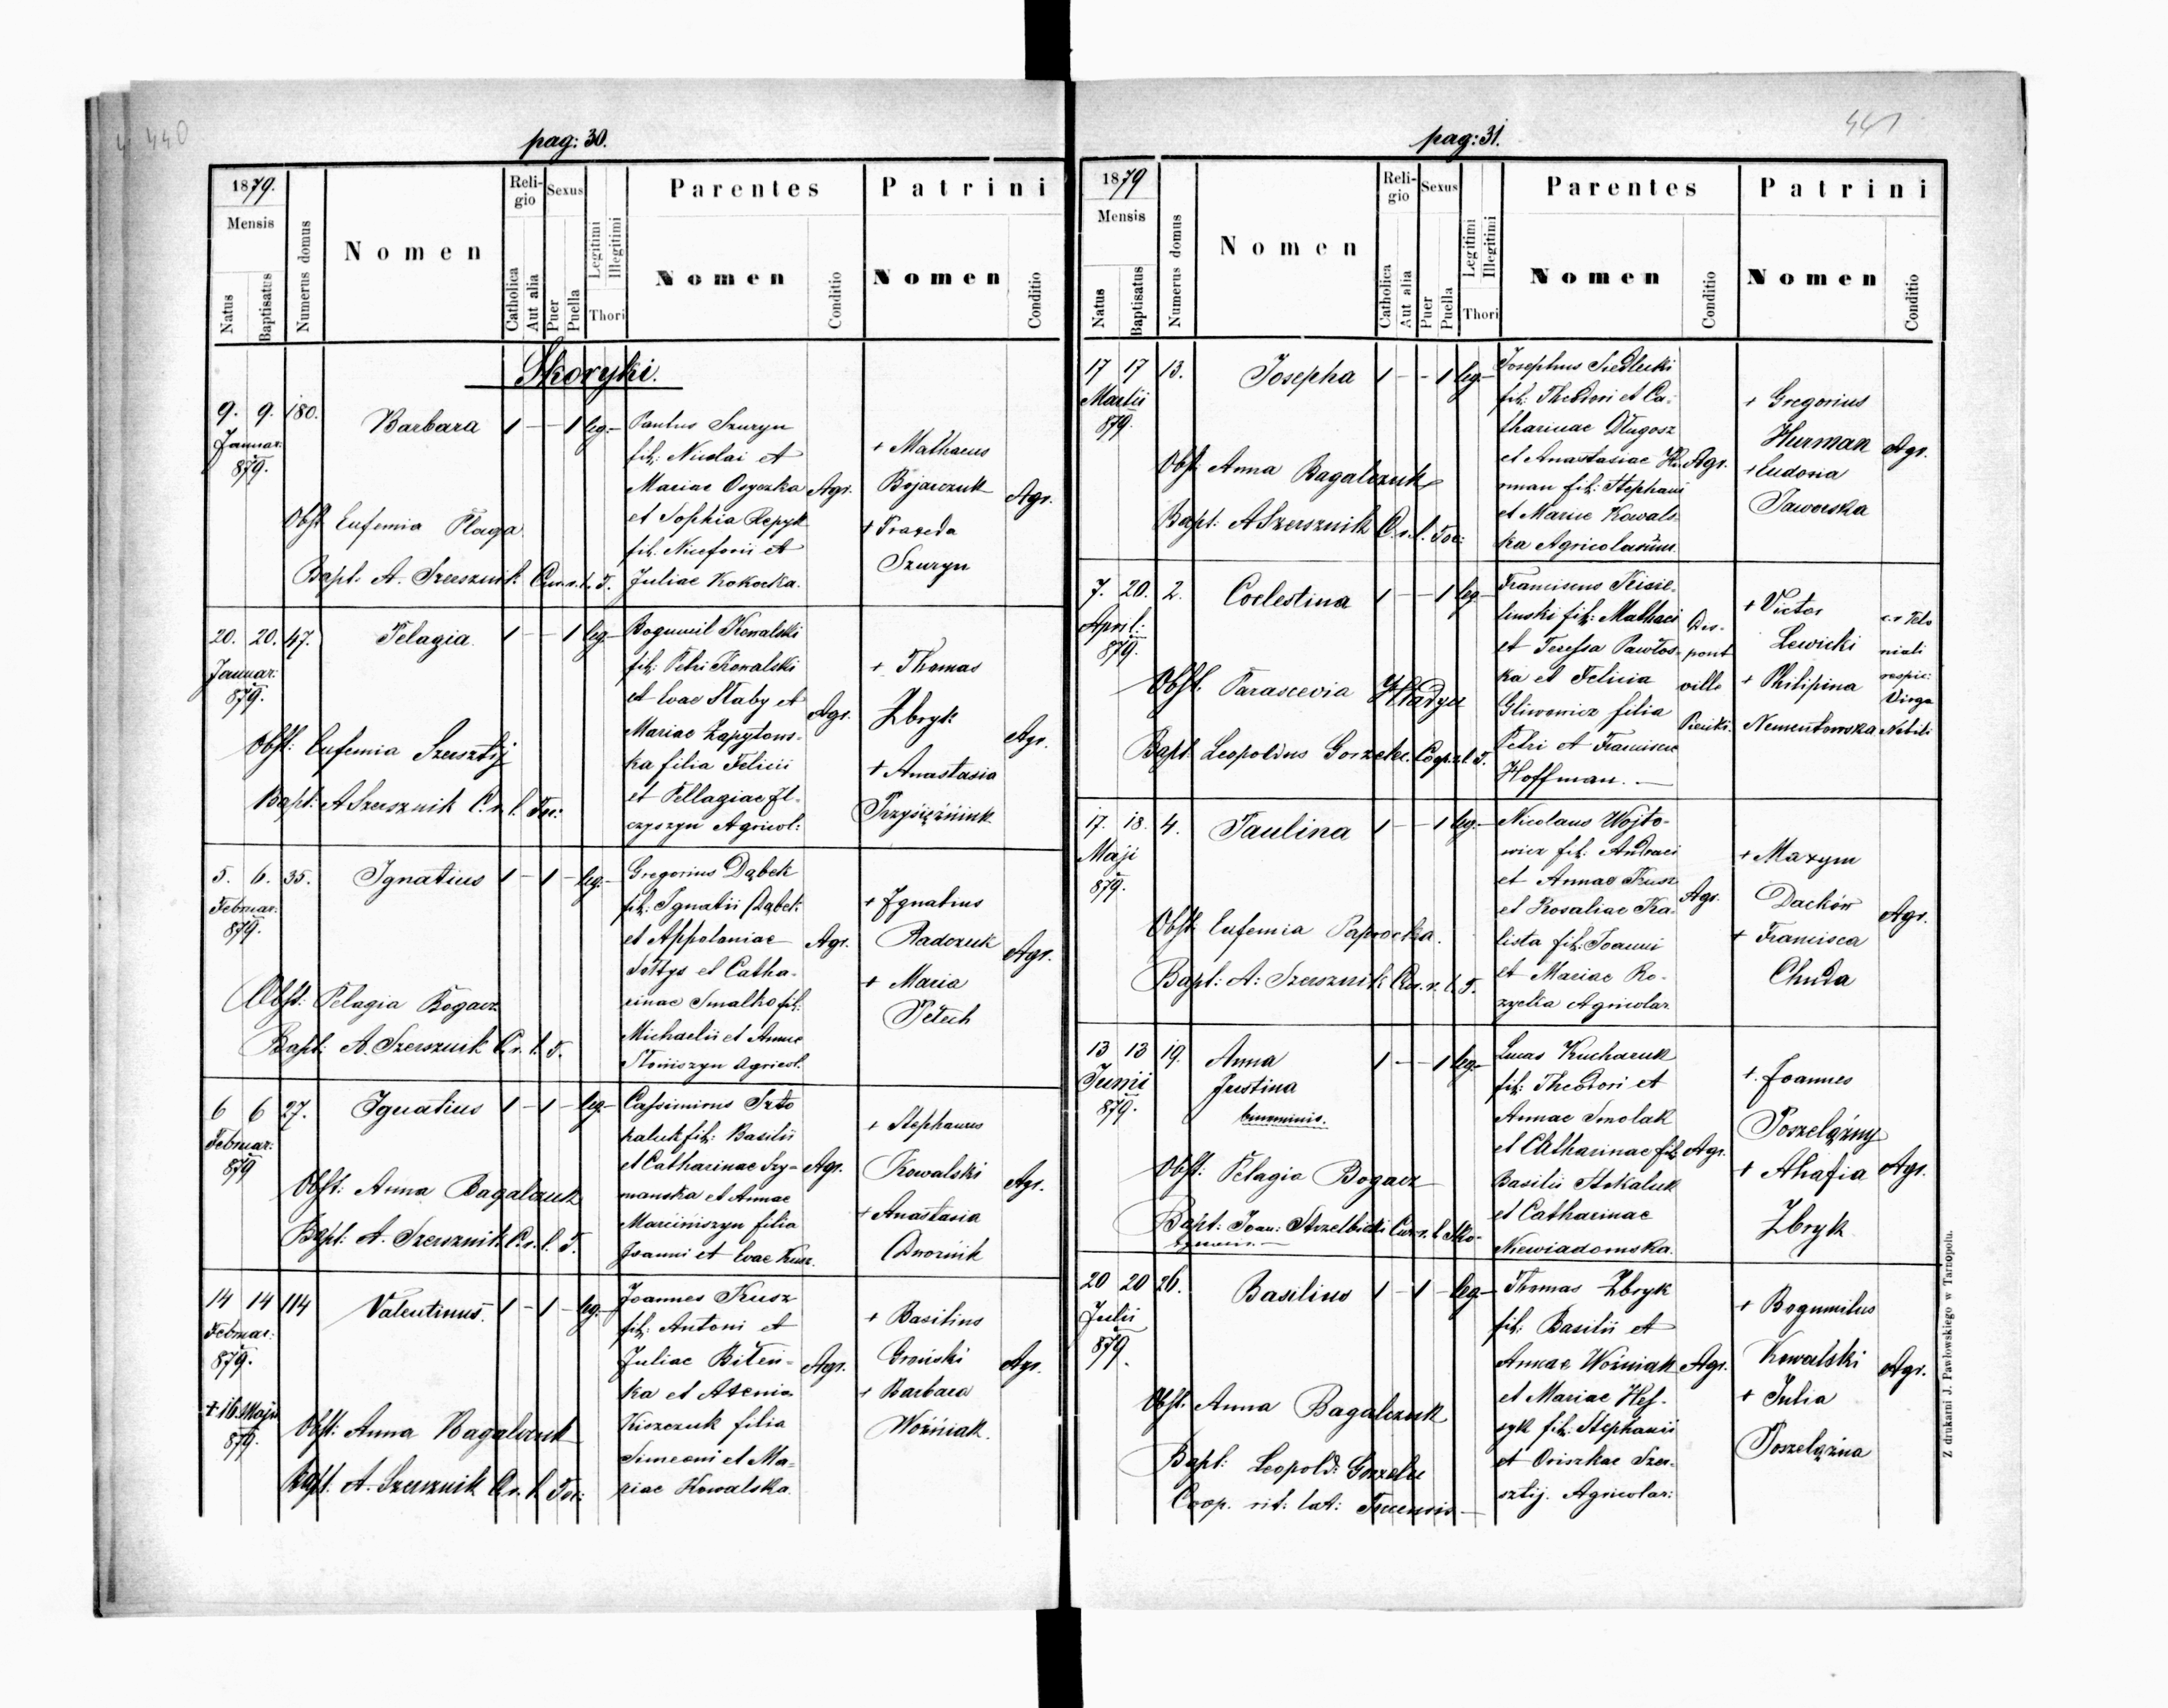 440
pag: 30.
1879.
Mensis
Natus
Baptisatus
Numerus domus
Nomen
Religio
Catholica
Aut alia
Sexus
Puer
Puella
Legitimi
Illegitimi
Thori
Parentes
Nomen
Conditio
Patrini
Nomen
Conditio
Skoryki.
9. 9. 180. Barbara 1 - - 1 leg.-
Januar:
879.
Obst. Eufemia Płaga
Bapt. A. Szersznik Cur. r. l. T.
Paulus Szuryn
fil: Nicolai et
Mariae Osyczka Agr.
et Sophia Repyk
fil. Nicefori et
Juliae Kokocka.
+ Mathaeus
Bojarczuk Agr.
+ Praxeda
Szuryn
20. 20. 47. Pelagia. 1 - - 1 leg-
Januar:
879.
Obst: Eufemia Szersztij
Bapt: A Szersznik C. r. l. Toc:
Bogumil Kowalski
fil: Petri Kowalski
et Evae Słaby et Agr.
Mariae Zapytows-
ka filia Felicii
et Pellagiae Il-
czyszyn Agricol:
+ Thomas
Zbryk Agr.
+ Anastasia
Przysiężniuk
5. 6. 35. Ignatius 1 - 1 - leg.-
Februar:
879.
Obst: Pelagia Bogacz
Bapt: A. Szersznik C. r. l. T.
Gregorius Dąbek
fil: Ignatii Dąbek
et Appolaniae Agr.
Sołtys et Catha-
rinae Smalko fil:
Michaelii et Annae
Słoniszyn Agricol.
+ Ignatius
Radczuk Agr.
+ Maria
Petech
6 6 27. Ignatius 1 - 1 - leg-
Februar:
879
Obst: Anna Bagalczuk
Bapt: A. Szersznik C. r. l. T.
Cassimirus Szto
kaluk fil: Basilii
et Catharinae Szy- Agr.
manska et Annae
Marciniszyn filia
Joanni et Evae Kusz.
+ Stephanus
Kowalski Agr.
+ Anastasia
Dwornik
14 14 114 Valentinus. 1 - 1 - leg.-
Februar:
879.
+ 16. Maji
879.
Obst: Anna Bagalczuk
Bapt. A. Szersznik C. r. l. Toc:
Joannes Kusz
fil: Antoni et
Juliae Bileń- Agr.
ka et Axenia
Kiszczuk filia
Simeoni et Ma-
riae Kowalska.
+ Basilius
Groński Agr.
+ Barbara
Woźniak.
441
pag: 31.
1879
Mensis
Natus
Baptisatus
Numerus domus
Nomen
Religio
Catholica
Aut alia
Sexus
Puer
Puella
Legitimi
Illegitimi
Thori
Parentes
Nomen
Conditio
Patrini
Nomen
Conditio
17 17 13. Josepha 1 - - 1 leg.-
Martii
879.
Obst. Anna Bagalczuk
Bapt: A Szersznik C. r. l. Toc:
Josephus Siedlecki
fil: Theodori et Ca-
tharinae Długosz
et Anastasiae Hu Agr.
rman fil: Stephani
et Mariae Kowals-
ka Agricolarum.
+ Gregorius
Hurman Agr.
+ Eudoxia
Jaworska
7. 20. 2. Coelestina 1 - - 1 leg-
April:
879.
Obst. Parascevia Hładyn
Bapt. Leopoldus Gorzelec. Coop. r. l. T.
Franciscus Kisie-
linski fil: Mathaei Des-
et Teressa Pawłos- pont
ka et Felicia ville
Gliwowicz filia Pieńki.
Petri et Franciscae
Hoffman.-
+ Victor
Lewicki
+ Philipina
Nementowska
respic:
Virgo
Nobili
17. 18. 4. Paulina 1 - - 1 leg.-
Maji
879.
Obst. Eufemia Paprocka.
Bapt: A: Szersznik Cur. r. l. T.
Nicolaus Wojto-
wicz fil: Andreei
et Annae Kusz Agr.
et Rosaliae Ka-
lista fil: Joanni
et Mariae Ro-
zycka Agricolar.
+ Maxym
Dacków Agr.
+ Francisca
Chuda
13 13 19. Anna 1 - - 1 leg.-
Junii Justina
879. binominis.
Obst: Pelagia Bogacz
Bapt: Joan: Strzelbicki Cur. r. l. Sko-
Lucas Kucharuk
fil: Theodori et
Annae Smolak
et Catharinae fil: Agr.
Basilii Stokaluk
et Catharinae
Niewiadomska.
+. Joannes
Poszelązny
+ Ahafia Agr.
Zbryk.
20 20 26. Basilius 1 - 1 - leg-
Julii
879.
Obst. Anna Bagalczuk
Bapt: Leopold: Gorzelec
Coop. rit: lat: Tocensis-
Thomas Zbryk
fil: Basilii et
Annae Woźniak Agr.
et Mariae Hes-
zyk fil: Stephanii
et Oriszkae Szer-
sztij. Agricolar:
+ Bogumilus
Kowalski Agr.
+ Julia
Poszelązna
Z drukarni J. Pawłowskiego w Tarnopolu.